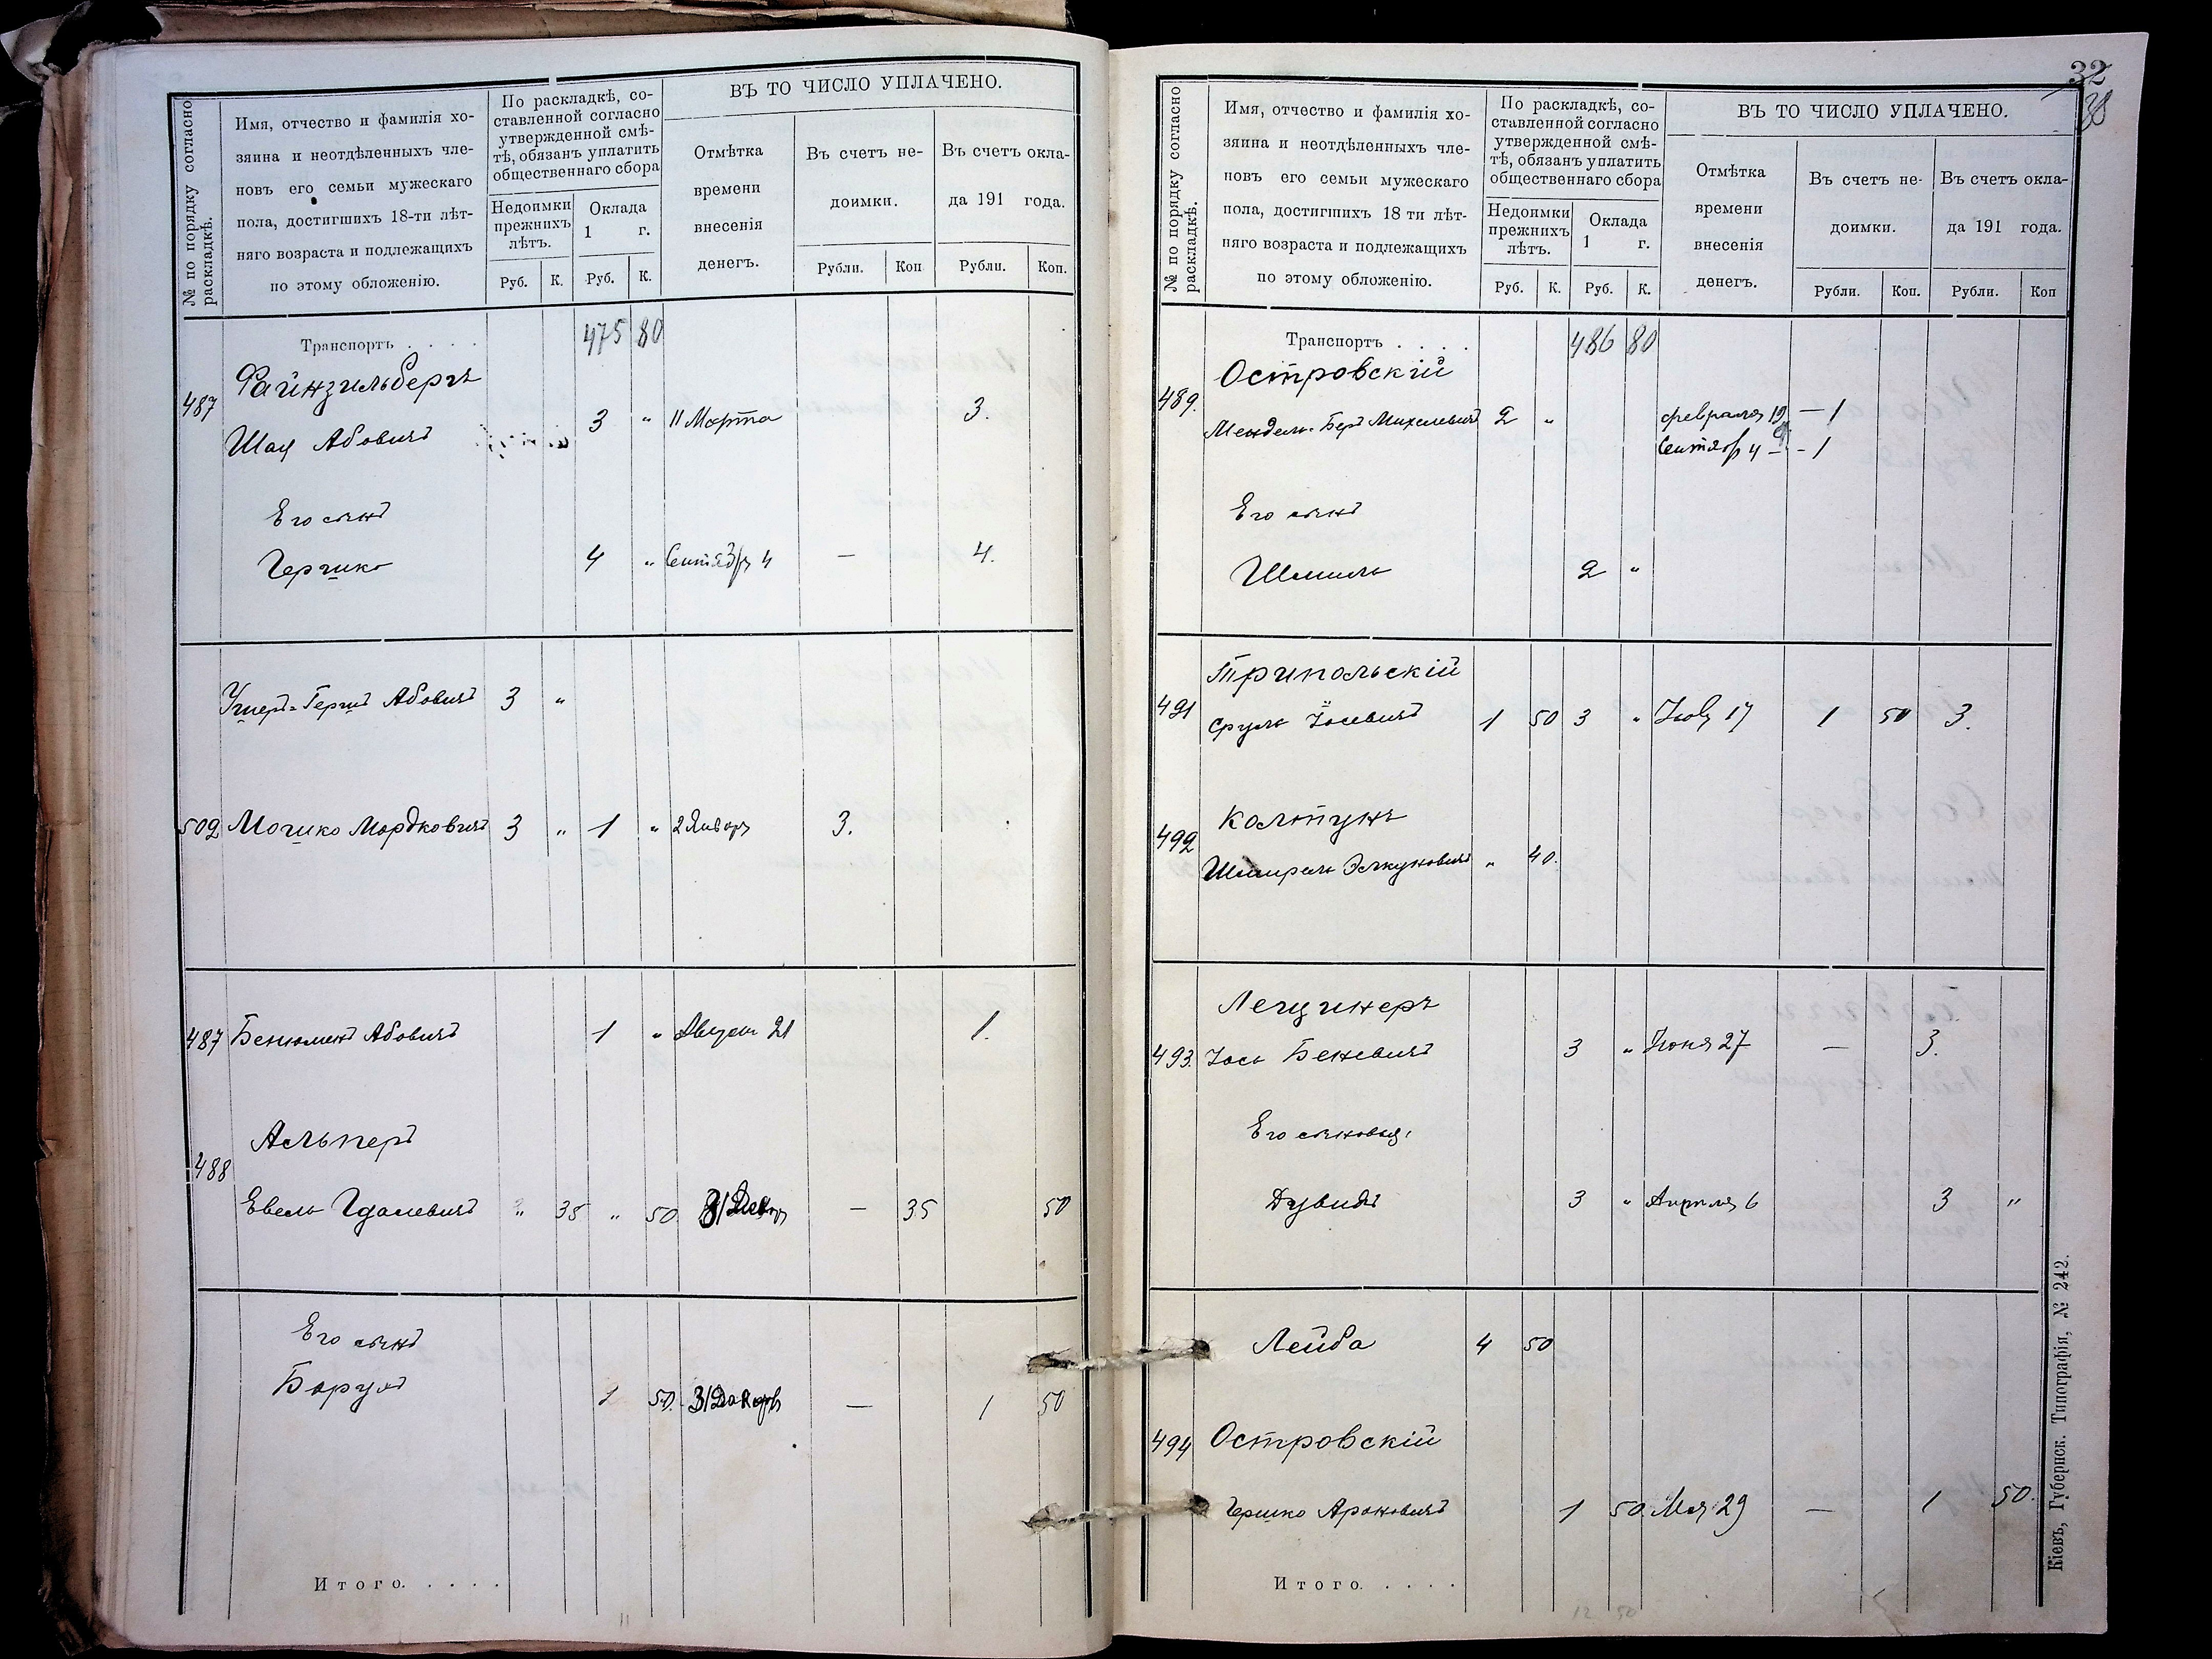 № по порядку согласно раскладкѣ.
Имя, отчество и фамилія хо-
зяина и неотдѣленныхъ чле-
новъ его семьи мужескаго
пола, достигшихъ 18-ти лѣт-
няго возраста и подлежащихъ
по этому обложенію.
По раскладкѣ, со-
ставленной согласно
утвержденной смѣ-
тѣ, обязанъ уплатить
общественнаго сбора
Недоимки прежнихъ лѣтъ.
Оклада 1 г.
Руб. К. Руб. К.
ВЪ ТО ЧИСЛО УПЛАЧЕНО.
Отмѣтка
времени
внесенія
денегъ.
Въ счетъ не-
доимки.
Въ счетъ окла-
да 191 года.
Рубли. Коп Рубли. Коп.
Транспортъ . . . . 475 80
Файнзильбергъ
487 Шая Абовичъ 3 " 11 Марта 3.
Его сынъ
Гершко 4 " Сентябр 4 — 4.
Ушеръ-Гершъ Абовичъ 3 "
502 Мошко Мордковичъ 3 " 1 " 2 Январ 3.
487 Бенюменъ Абовичъ 1 " Август 21 1.
Альперъ
488
Евель Гдалевичъ " 35 " 50 31 Декр — 35 50
Его сынъ
Борухъ 1 50. 31 Декаръ — 1 50
Итого. . . . .
11
32
38
№ по порядку согласно раскладкѣ.
Имя, отчество и фамилія хо-
зяина и неотдѣленныхъ чле-
новъ его семьи мужескаго
пола, достигшихъ 18 ти лѣт-
няго возраста и подлежащихъ
по этому обложенію.
По раскладкѣ, со-
ставленной согласно
утвержденной смѣ-
тѣ, обязанъ уплатить
общественнаго сбора
Недоимки прежнихъ лѣтъ.
Оклада 1 г.
Руб. К. Руб. К.
ВЪ ТО ЧИСЛО УПЛАЧЕНО.
Отмѣтка
времени
внесенія
денегъ.
Въ счетъ не-
доимки.
Въ счетъ окла-
да 191 года.
Рубли. Коп. Рубли. Коп
Транспортъ . . . . 486 80
Островскій
489. Мендель-Беръ Михелевичъ 2 " февраля 19 — 1
Сентябр 4 — 1
Его сынъ
Шмиль 2 "
Трипольскій
491 Сруль Іосевичъ 1 50 3 " 17 1 50 3.
Колтунъ
492 Шмерель Элкуновичъ " 40.
Лещинеръ
493. Іось Беневичъ 3 " Іюня 27 — 3.
Его сыновья:
Дувидъ 3 " Апрѣля 6 3 "
Лейба 4 50
494 Островскій
Гершко Ароновичъ 1 50 Мая 29 — 1 50.
Итого. . . . .
12 50
Кіевъ, Губернск. Типографія, № 242.